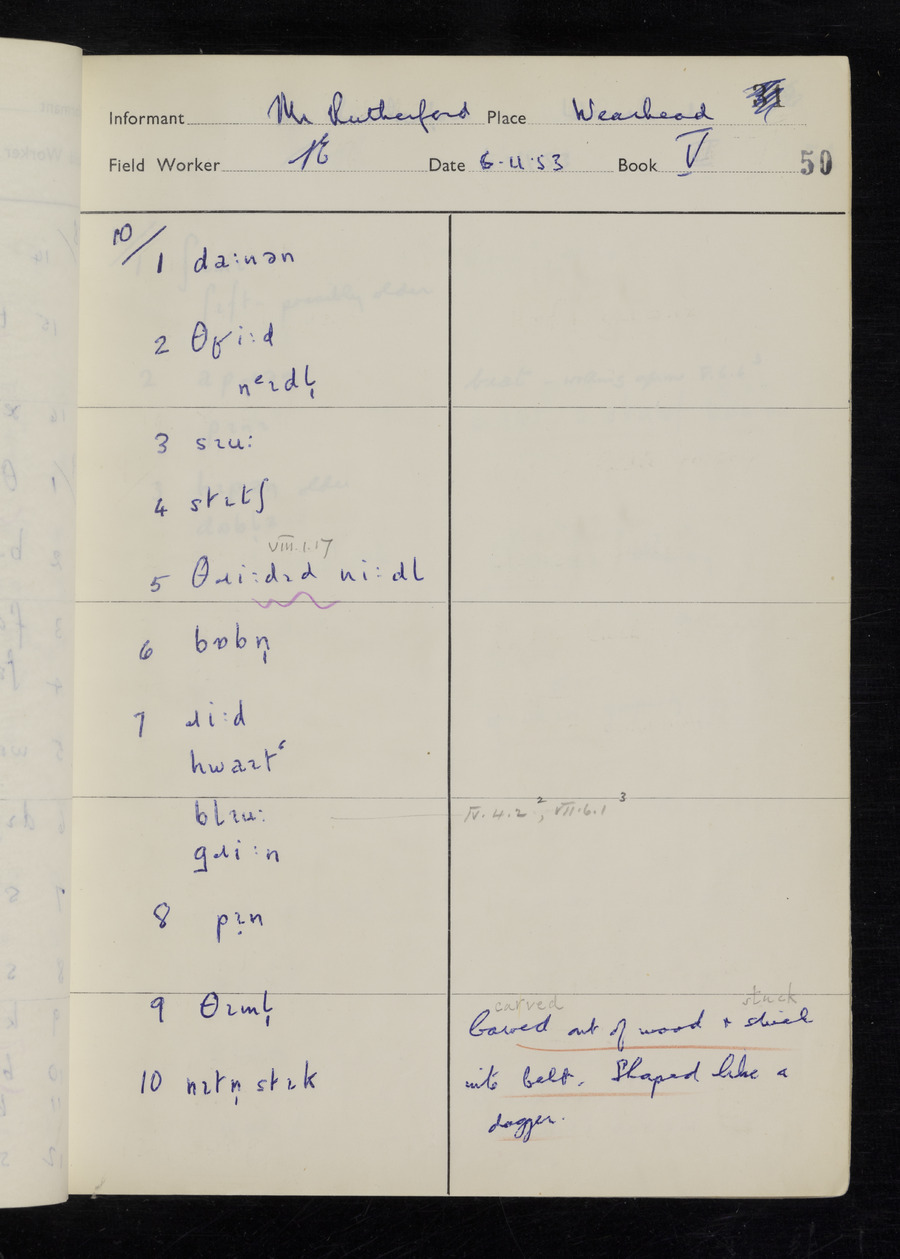 Informant Mr Rutherford Place Wearhead
Field Worker Date 6.11.53 Book V 50
10/
1 da:nən
2 θɾi:d
nᵉɪdl̩
3 sɪu:
4 stɪtʃ
VIII.1.17
5 θɹi:dɪd ni:dl
6 bɒbn̩
7 ɹi:d
hwaɪtʻ
blɪu: IV.4.2², VII.6.1³
gɹi:n
8 pɪ̣n
9 θɪml̩
carved stuck
Carved out of wood & stuck
10 nɪtn̩ stɪk
into belt. Shaped like a
dagger.